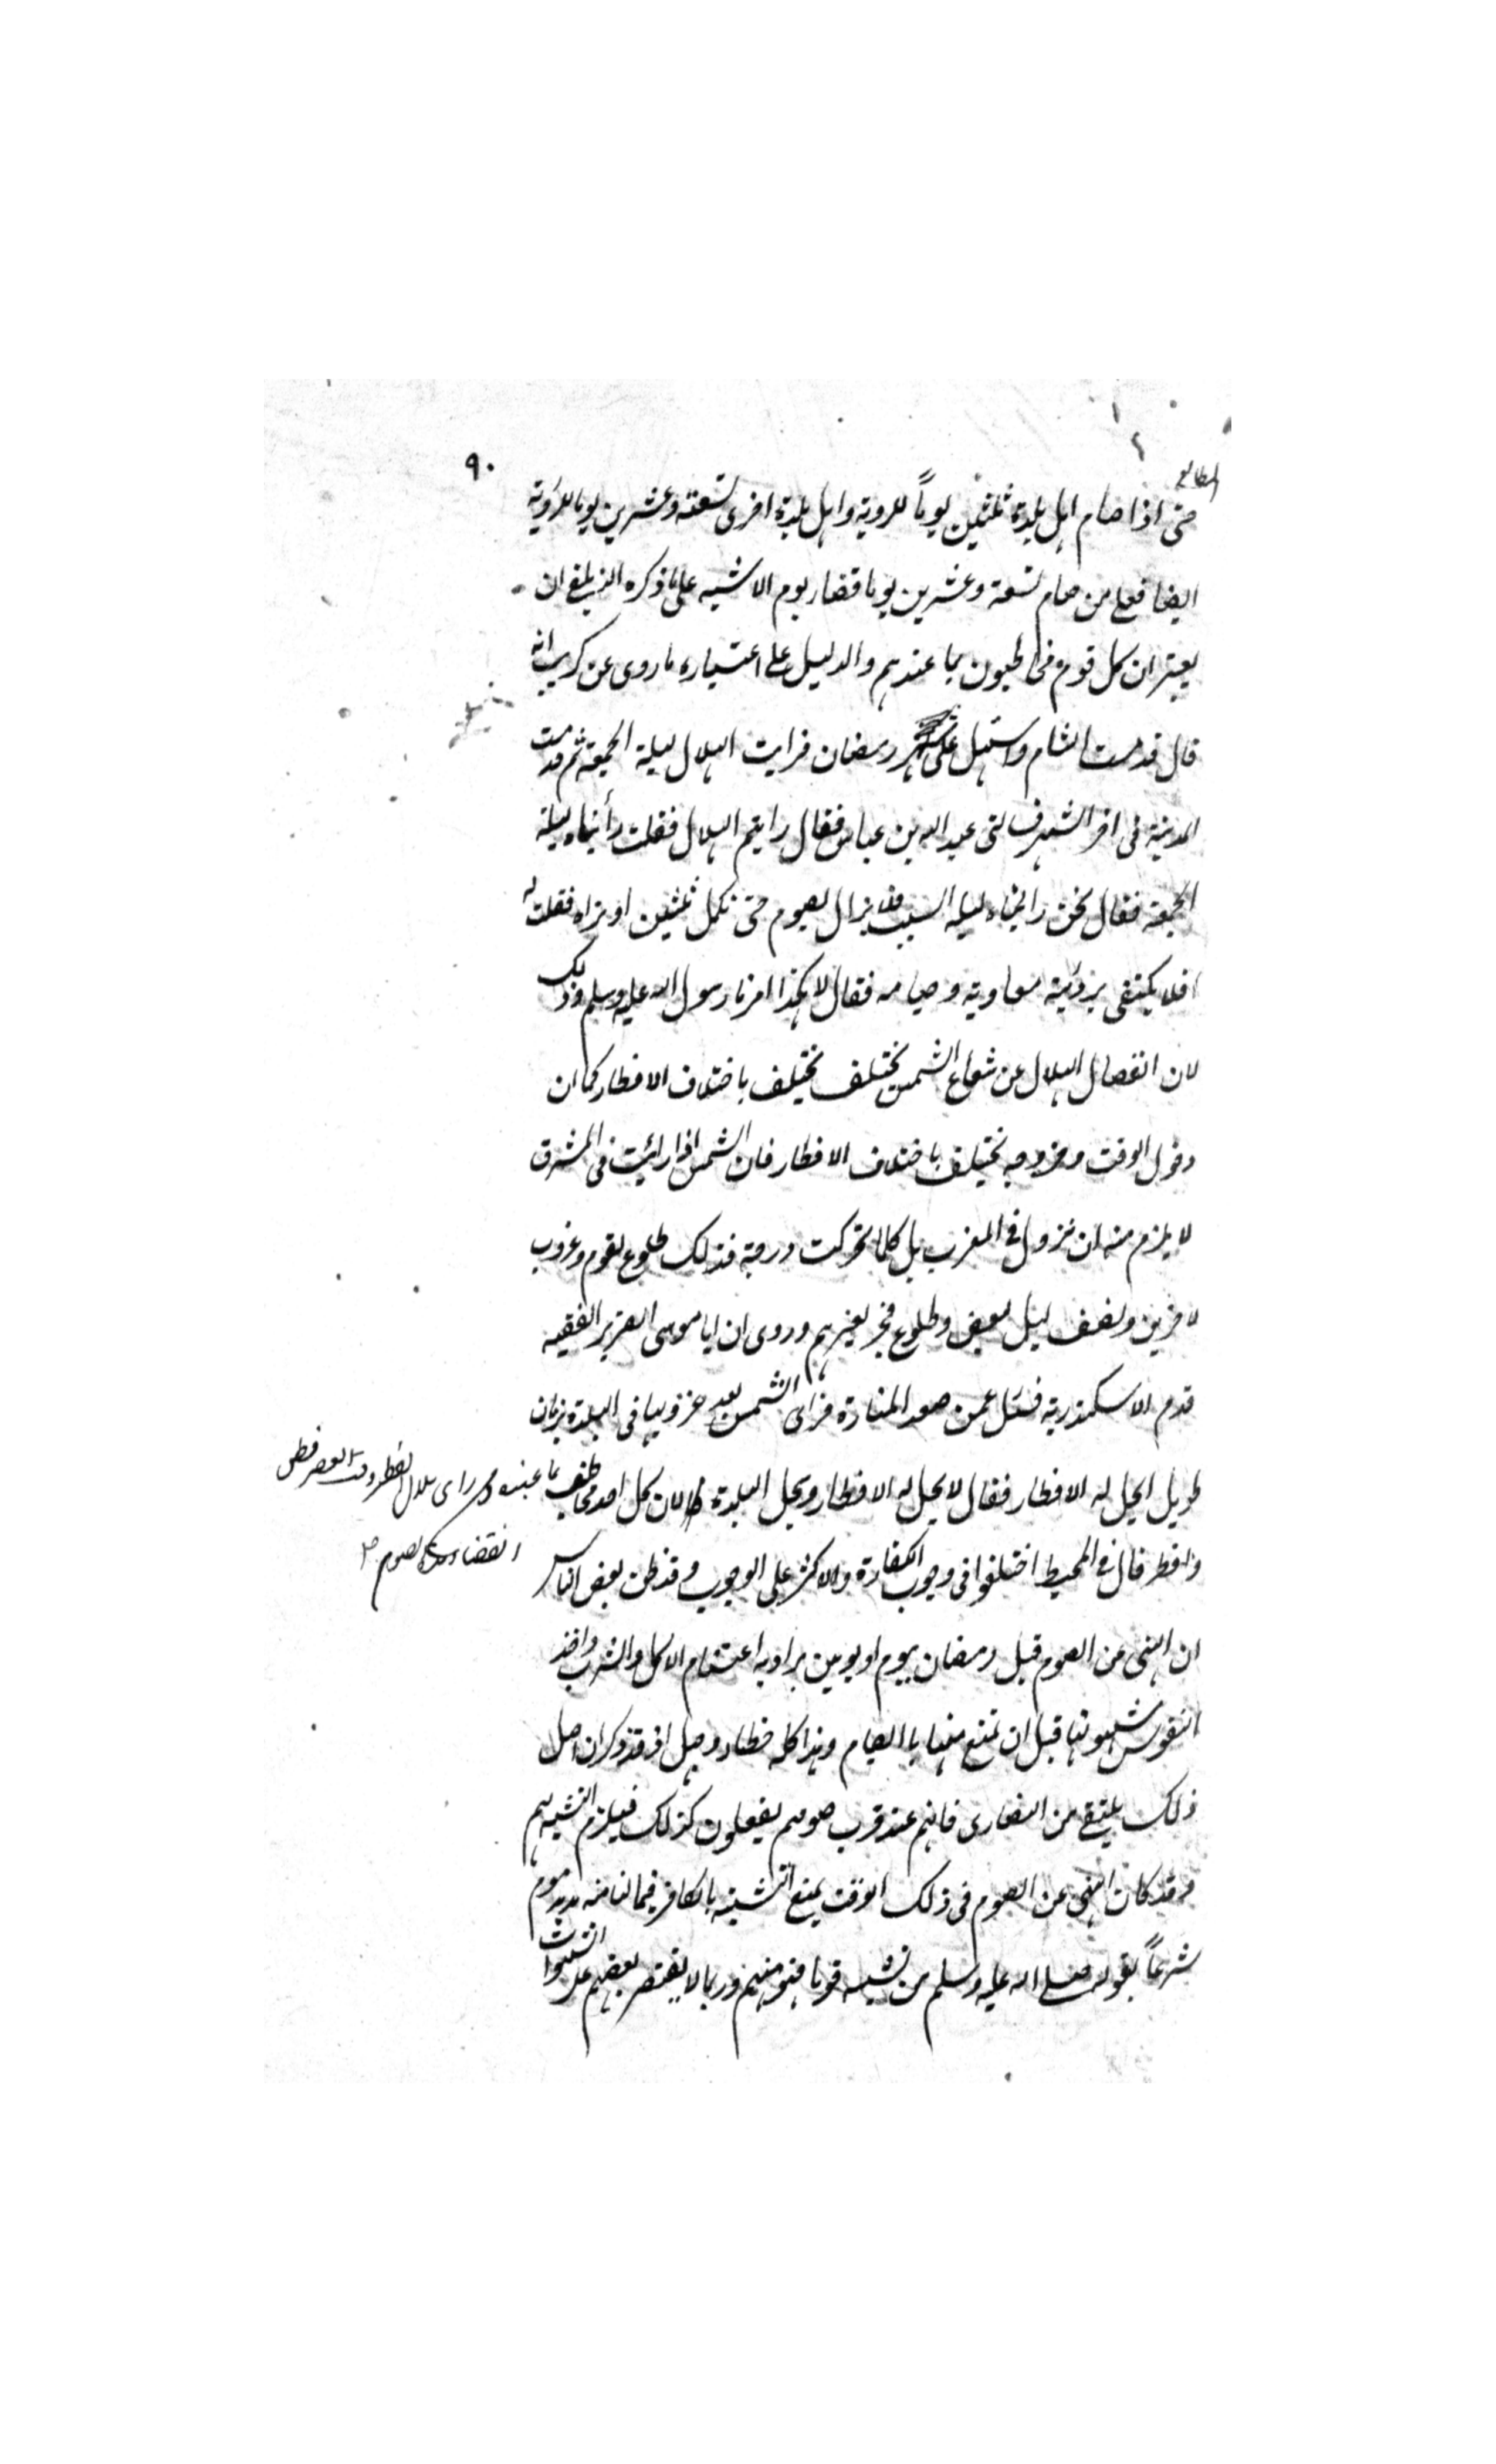 ٩٠
المطالع
حتى اذا صام اهل بلدة ثلثين يوماً للروية واهل بلدة اخرى تسعة وعشرين يوما للروية
ايضا فعلى من صام تسعة وعشرين يوما قضاء يوم الاشبه على ما ذكره الزيلعي ان
يعتبر ان كل قوم مخاطبون بما عندهم والدليل على اعتباره ما روى عن كريب انه
قال قدمت الشام واستهل على شهر رمضان فرايت الهلال ليلة الجمعة ثم قدمت
المدينة فى اخر الشهر فسالنى عبد الله بن عباس فقال رايتم الهلال فقلت رأيناه ليلة
الجمعة فقال نحن رايناه ليلة السبت فلا يزال يصوم حتى نكمل ثلثين او نراه فقلت له
افلا يكتفى برؤية معاوية وصيامه فقال لا هكذا امرنا رسول الله عليه وسلم وذلك
لان انفصال الهلال عن شعاع الشمس يختلف يختلف باختلاف الاقطار كما ان
دخول الوقت وخروجه يختلف باختلاف الاقطار فان الشمس اذا رائيت فى المشرق
لا يلزم منه ان تزول فى المغرب بل كلما تحركت درجة فذلك طلوع لقوم وغروب
لاخرين ونصف ليل لبعض وطلوع فجر لغيرهم وروى ان ابا موسى الضرير الفقيه
قدم الاسكندرية فسئل عمن صعد المنارة فراى الشمس بعد غروبها فى البلدة بزمان
طويل ايحل له الافطار فقال لا يحل له الافطار ويحل البلدة لان كل احد مخاطب بما عنده ومن راى هلال الفطر وقت العصر فظن
انقضاء مدة الصوم صح
وافطر قال فى المحيط اختلفوا فى وجوب الكفارة والاكثر على الوجوب وقد ظن بعض الناس
ان النهى من الصوم قبل رمضان بيوم او يومين يراد به اغتنام الاكل والشرب واخذ
النفوس شهوتها قبل ان تمنع منها بالصيام وهذا كله خطاء وجهل اذ قد ذكر ان اصل
ذلك من النصارى فانهم عند قرب صومهم يفعلون كذلك فيلزم التشبه بهم
وقد كان النهى عن الصوم فى ذلك الوقت يمنع التشبه بالكافر فيما لنا منه بد مذموم
شرعاً بقوله صلى الله عليه وسلم من تشبه قوما فهو منهم وربما لا يقتصر بعضهم على الشهوات